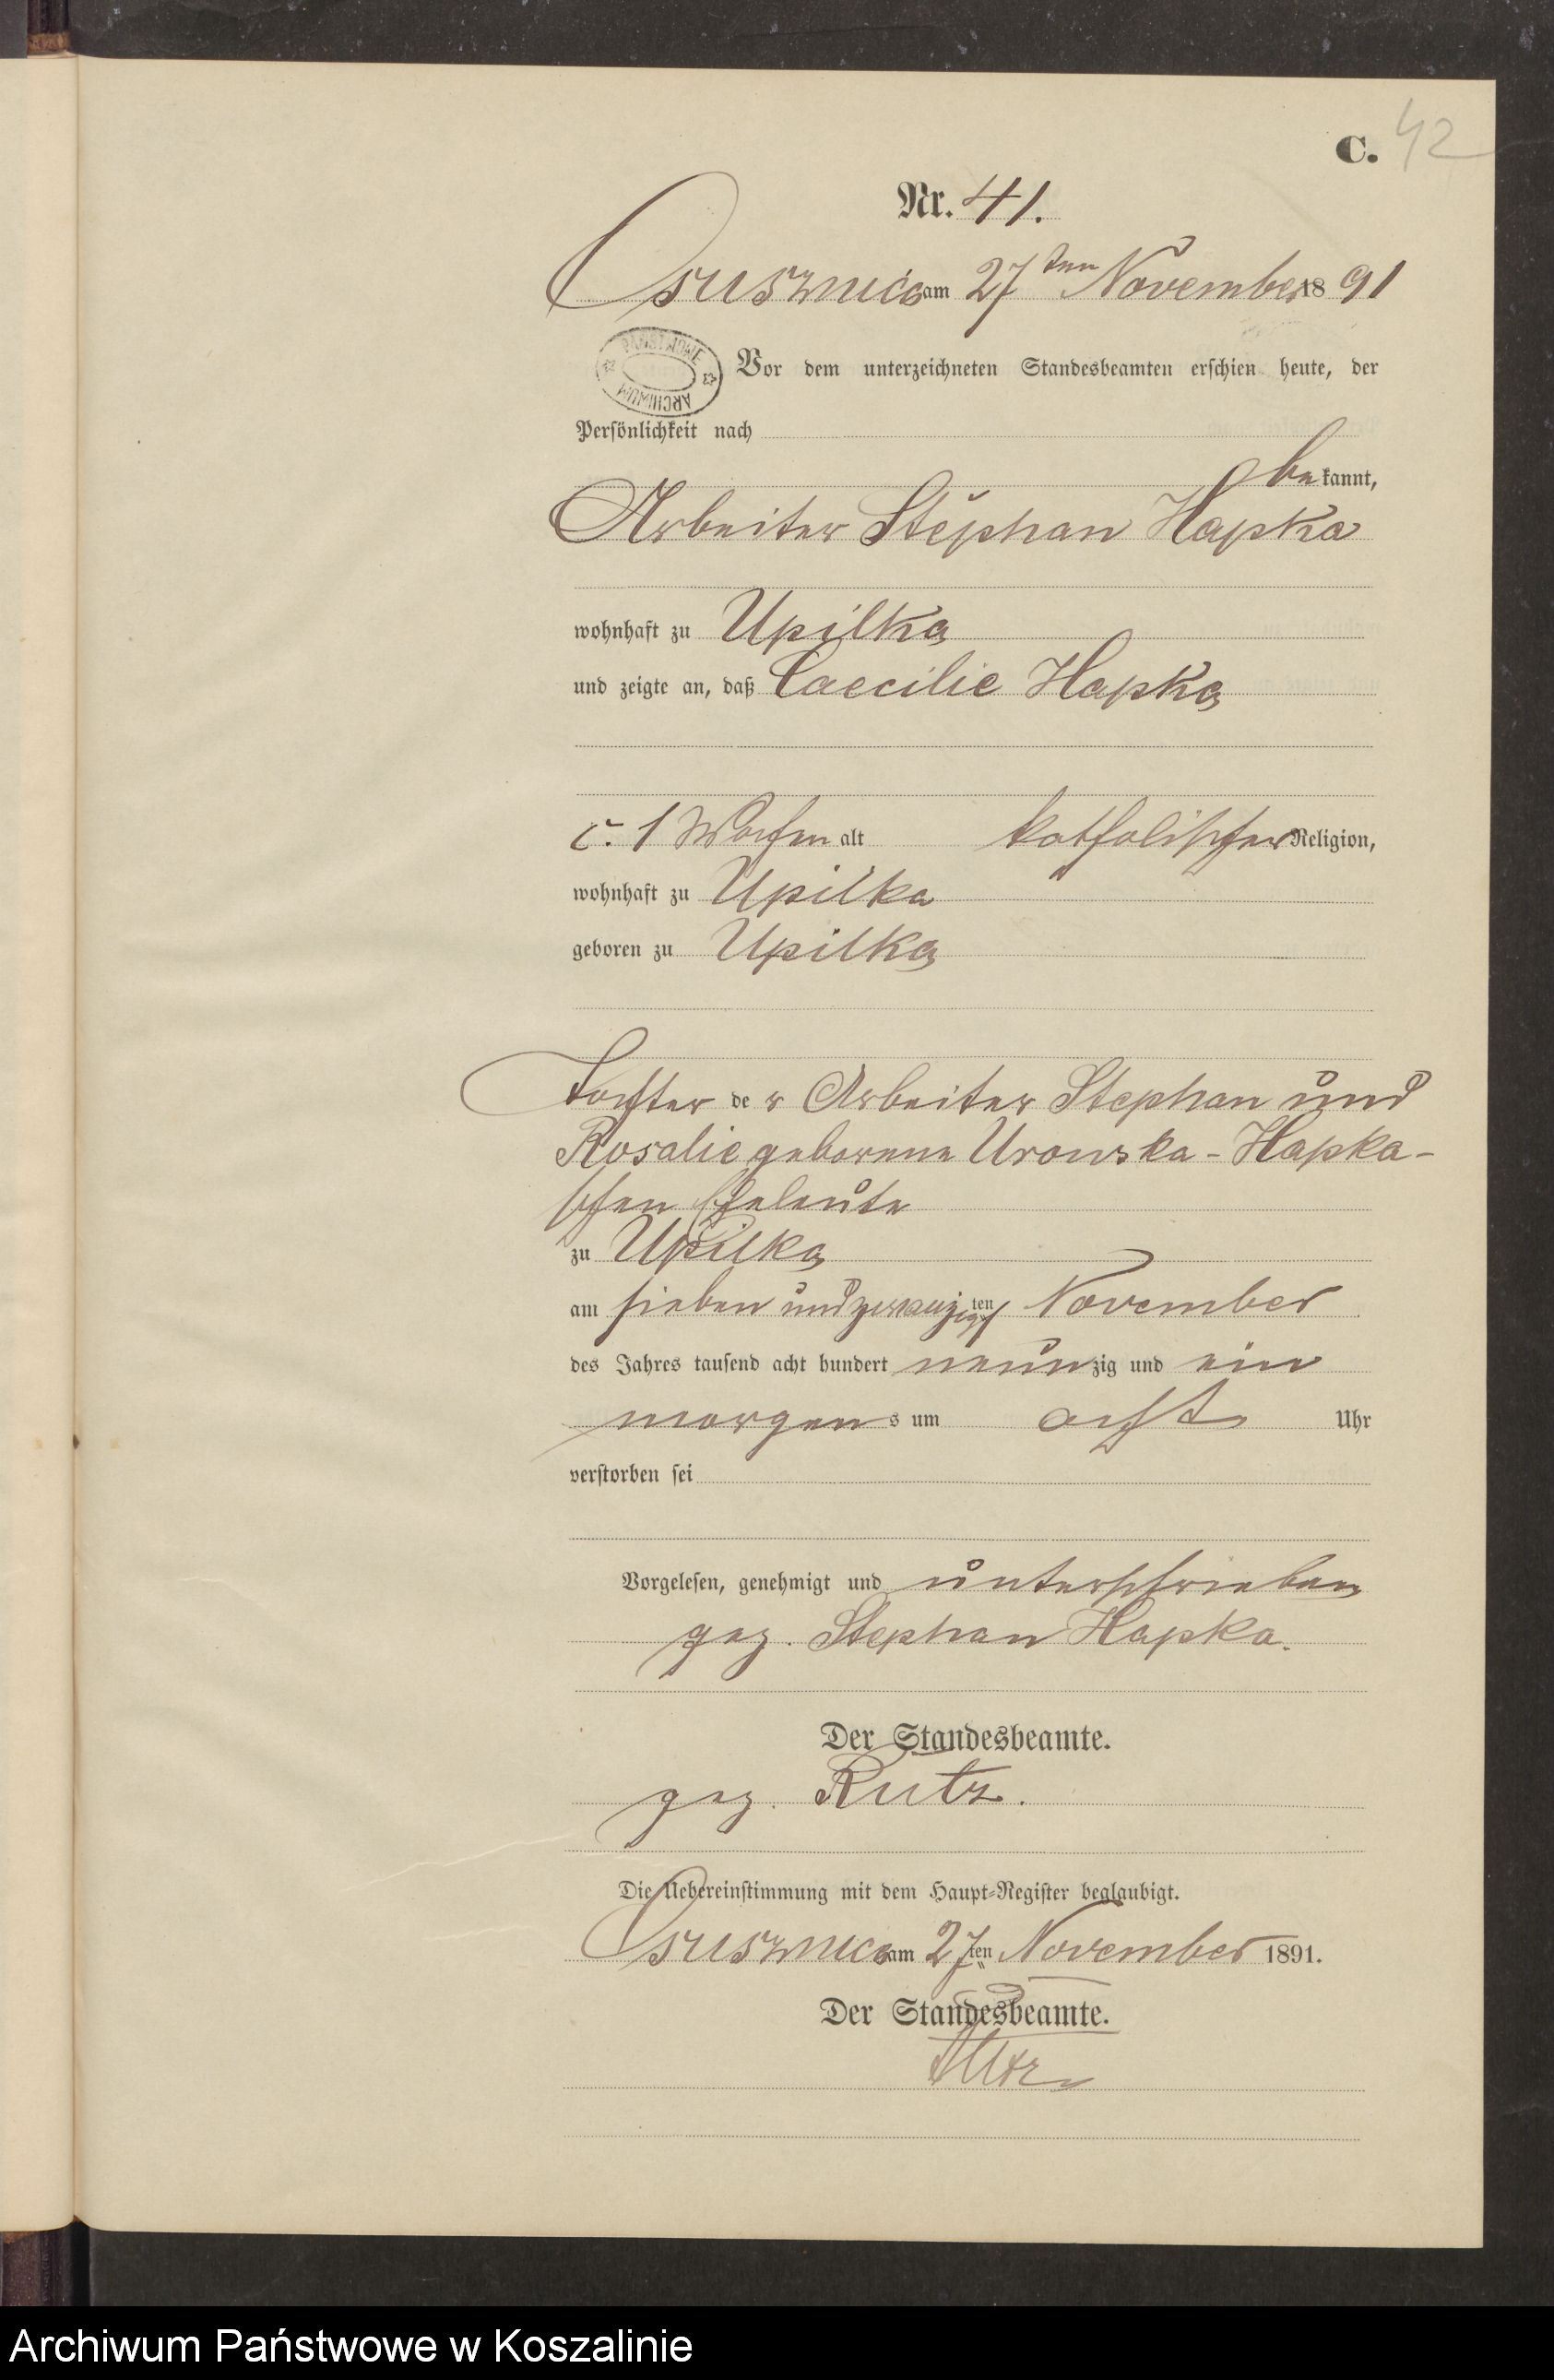 C. 42
Nr. 41.
Osusznica am 27ten November 1891
PAŃSTWOWE
ARCHIWUM
Vor dem unterzeichneten Standesbeamten erschien heute, der
Persönlichkeit nach
bekannt,
Arbeiter Stephan Hapka
wohnhaft zu Upilka
und zeigte an, daß Caecilie Hapka
c. 1 Wochen alt katholischer Religion,
wohnhaft zu Upilka
geboren zu Upilka
Tochter der Arbeiter Stephan und
Rosalie geborene Urowska - Hapka-
schen Eheleute
zu Upilka
am sieben und zwanzigsten November
des Jahres tausend acht hundert neunzig und ein
morgens um acht Uhr
verstorben sei
Vorgelesen, genehmigt und unterschrieben
gez. Stephan Hapka.
Der Standesbeamte.
gez. Rutz.
Die Uebereinstimmung mit dem Haupt-Register beglaubigt.
Osusznica am 27ten November 1891.
Der Standesbeamte.
Rutz
Archiwum Państwowe w Koszalinie